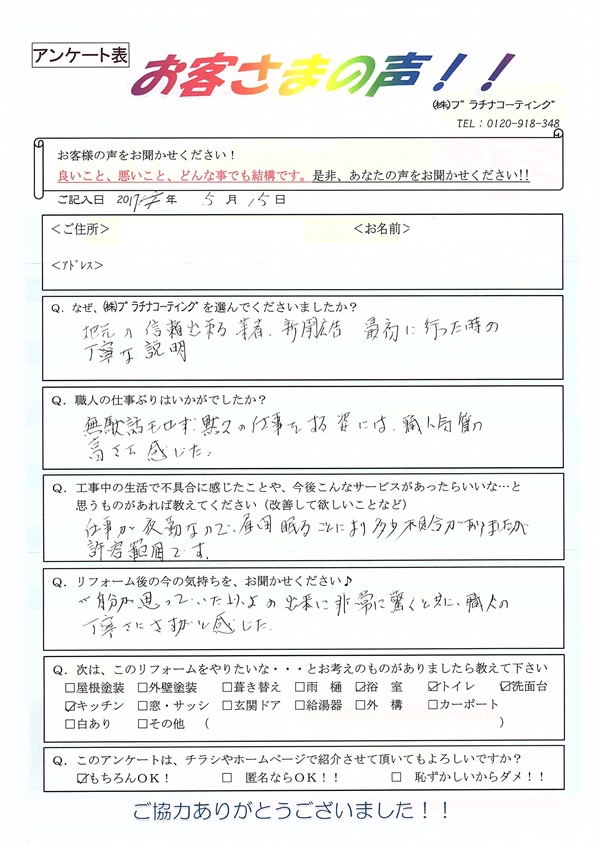 アンケート表
お客さまの声！！
㈱プラチナコーティング
TEL：0120-918-348
お客様の声をお聞かせください！
良いこと、悪いこと、どんな事でも結構です。是非、あなたの声をお聞かせください!!
ご記入日 2017年 年 5 月 15 日
＜ご住所＞ ＜お名前＞
＜ｱﾄﾞﾚｽ＞
Q．なぜ、㈱プラチナコーティングを選んでくださいましたか？
地元の信頼出来る業者、新聞広告 最初に行った時の
丁寧な説明
Q．職人の仕事ぶりはいかがでしたか？
無駄話もせず、黙々の仕事をする姿には、職人気質の
高さを感じた。
Q．工事中の生活で不具合に感じたことや、今後こんなサービスがあったらいいな…と
思うものがあれば教えてください（改善して欲しいことなど）
仕事が夜勤なので、昼間眠ることにより多少不具合がありましたが
許容範囲です。
Q．リフォーム後の今の気持ちを、お聞かせください♪
自分が思っていたより、の出来に非常に驚くと共に、職人の
丁寧さにさすがと感じた。
Q．次は、このリフォームをやりたいな・・・とお考えのものがありましたら教えて下さい
□屋根塗装 □外壁塗装 □葺き替え □雨 樋 ☑浴 室 ☑トイレ ☑洗面台
☑キッチン □窓・サッシ □玄関ドア □給湯器 □外 構 □カーポート
□白あり □その他 （ ）
Q．このアンケートは、チラシやホームページで紹介させて頂いてもよろしいですか？
☑もちろんOK！ □ 匿名ならOK！！ □ 恥ずかしいからダメ！！
ご協力ありがとうございました！！